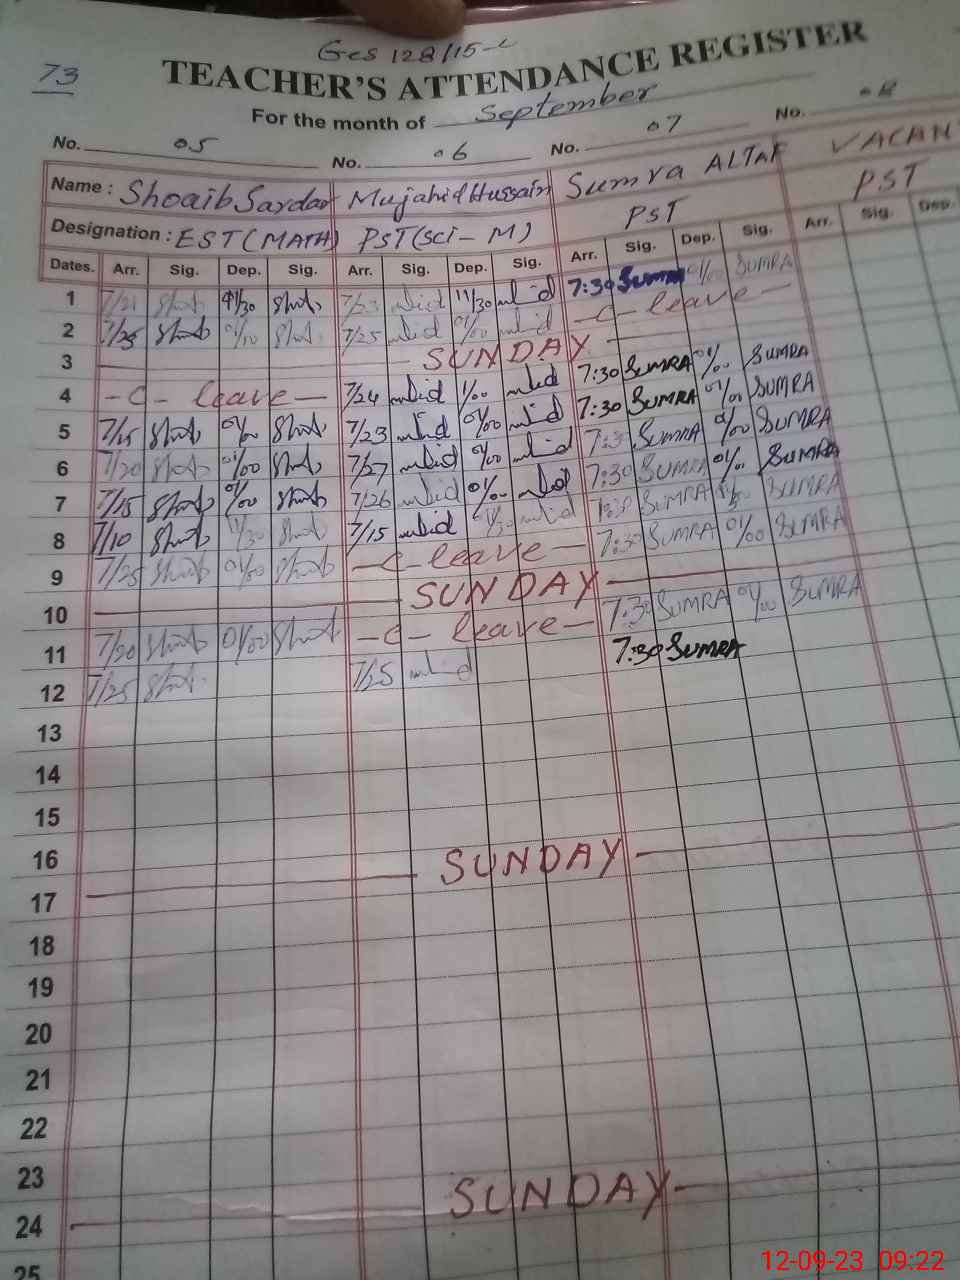 Ges 128/15-L
73
TEACHER'S ATTENDANCE REGISTER
For the month of September
No. 05 No. 06 No. 07 No. 08
Name : Shoaib Sardar Mujahid Hussain Sumra ALTAF VACANT
Designation : EST (MATH) PST (SCI - M) PST PST
Dates. Arr. Sig. Dep. Sig. Arr. Sig. Dep. Sig. Arr. Sig. Dep. Sig. Arr. Sig. Dep.
1 7/21 11/30 7/23 11/30 7:30 SUMRA 01/00 SUMRA
2 7/25 01/00 7/25 01/00 - C - leave -
3 SUNDAY
4 - C - leave - 7/24 1/00 7:30 SUMRA 01/00 SUMRA
5 7/15 01/00 7/23 01/00 7:30 SUMRA 01/00 SUMRA
6 7/20 01/00 7/27 01/00 SUMRA 01/00 SUMRA
7 7/15 01/00 7/26 01/00 7:30 SUMRA 01/00 SUMRA
8 7/10 11/30 7/15 11/30 7:30 SUMRA SUMRA
9 7/25 01/00 - C - leave - 7:30 SUMRA 01/00 SUMRA
10 SUNDAY
11 7/20 01/00 - C - leave - 7:30 SUMRA 01/00 SUMRA
12 7/25 7/25 7:30 SUMRA
13
14
15
16
17 SUNDAY
18
19
20
21
22
23
24 SUNDAY
25
12-09-23 09:22